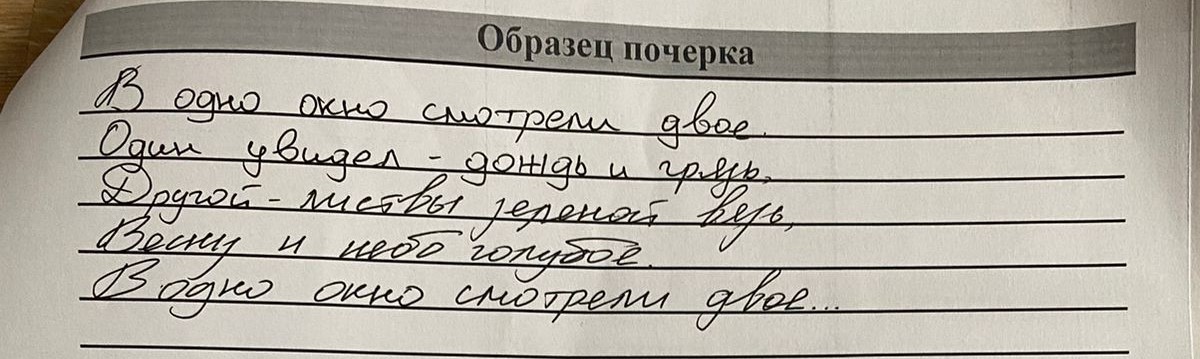 Образец почерка
В одно окно смотрели двое.
Один увидел - дождь и грязь,
Другой - листвы зеленой вязь,
Весну и небо голубое.
В одно окно смотрели двое...